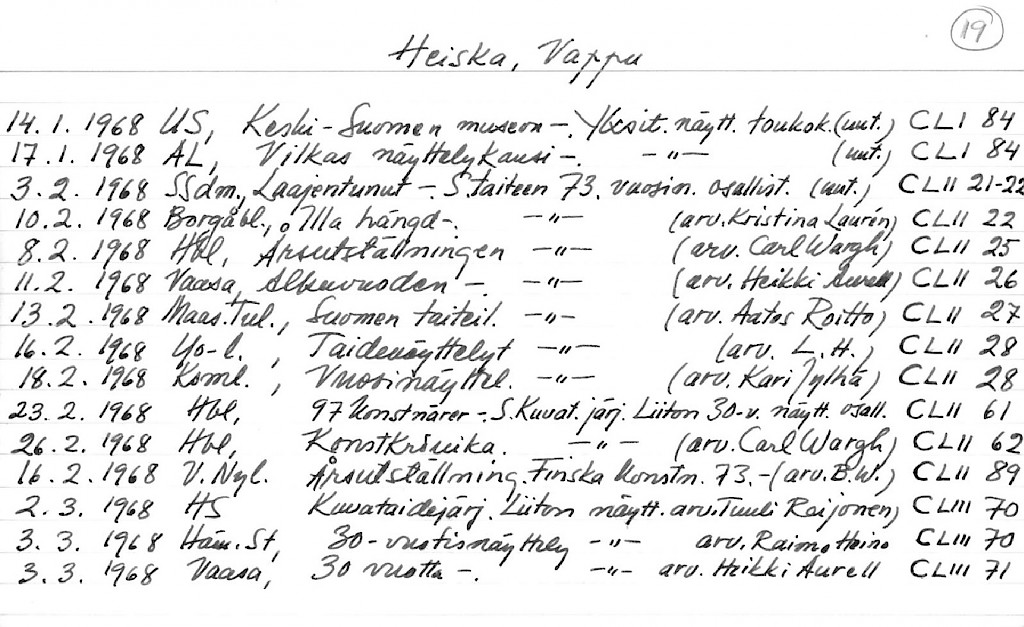 19
Heiska, Vappu
14.1.1968 US, Keski-Suomen museon -. Yksit. näytt. toukok. (uut.) CLI 84
17.1.1968 AL, Vilkas näyttelykausi -. -"- (uut.) CLI 84
3.2.1968 SSdm., Laajentunut - S. taiteen 73. vuosin. osallist. (uut.) CLII 21-22
10.2.1968 Borgåbl., Illa hängd -. -"- (arv. Kristina Laurén) CLII 22
8.2.1968 Hbl, Årsutställningen -"- (arv. Carl Wargh) CLII 25
11.2.1968 Vaasa, Alkuvuoden -. -"- (arv. Heikki Aurell) CLII 26
13.2.1968 Maas.Tul., Suomen taiteil. -"- (arv. Aatos Roitto) CLII 27
16.2.1968 Yo-l., Taidenäyttelyt -"- (arv. L.H.) CLII 28
18.2.1968 Koml., Vuosinäyttel. -"- (arv. Kari Jylhä) CLII 28
23.2.1968 Hbl, 97 konstnärer - S. Kuvat. järj. Liiton 30-v. näytt. osall. CLII 61
26.2.1968 Hbl, Konstkrönika. -"- (arv. Carl Wargh) CLII 62
16.2.1968 V.Nyl. Årsutställning. Finska konstn. 73. - (arv. B.W.) CLII 89
2.3.1968 HS Kuvataidejärj. Liiton näytt. arv. Tuuli Reijonen) CLIII 70
3.3.1968 Häm.St, 30-vuotisnäyttely -"- arv. Raimo Heino CLIII 70
3.3.1968 Vaasa, 30 vuotta -. -"- arv. Heikki Aurell CLIII 71